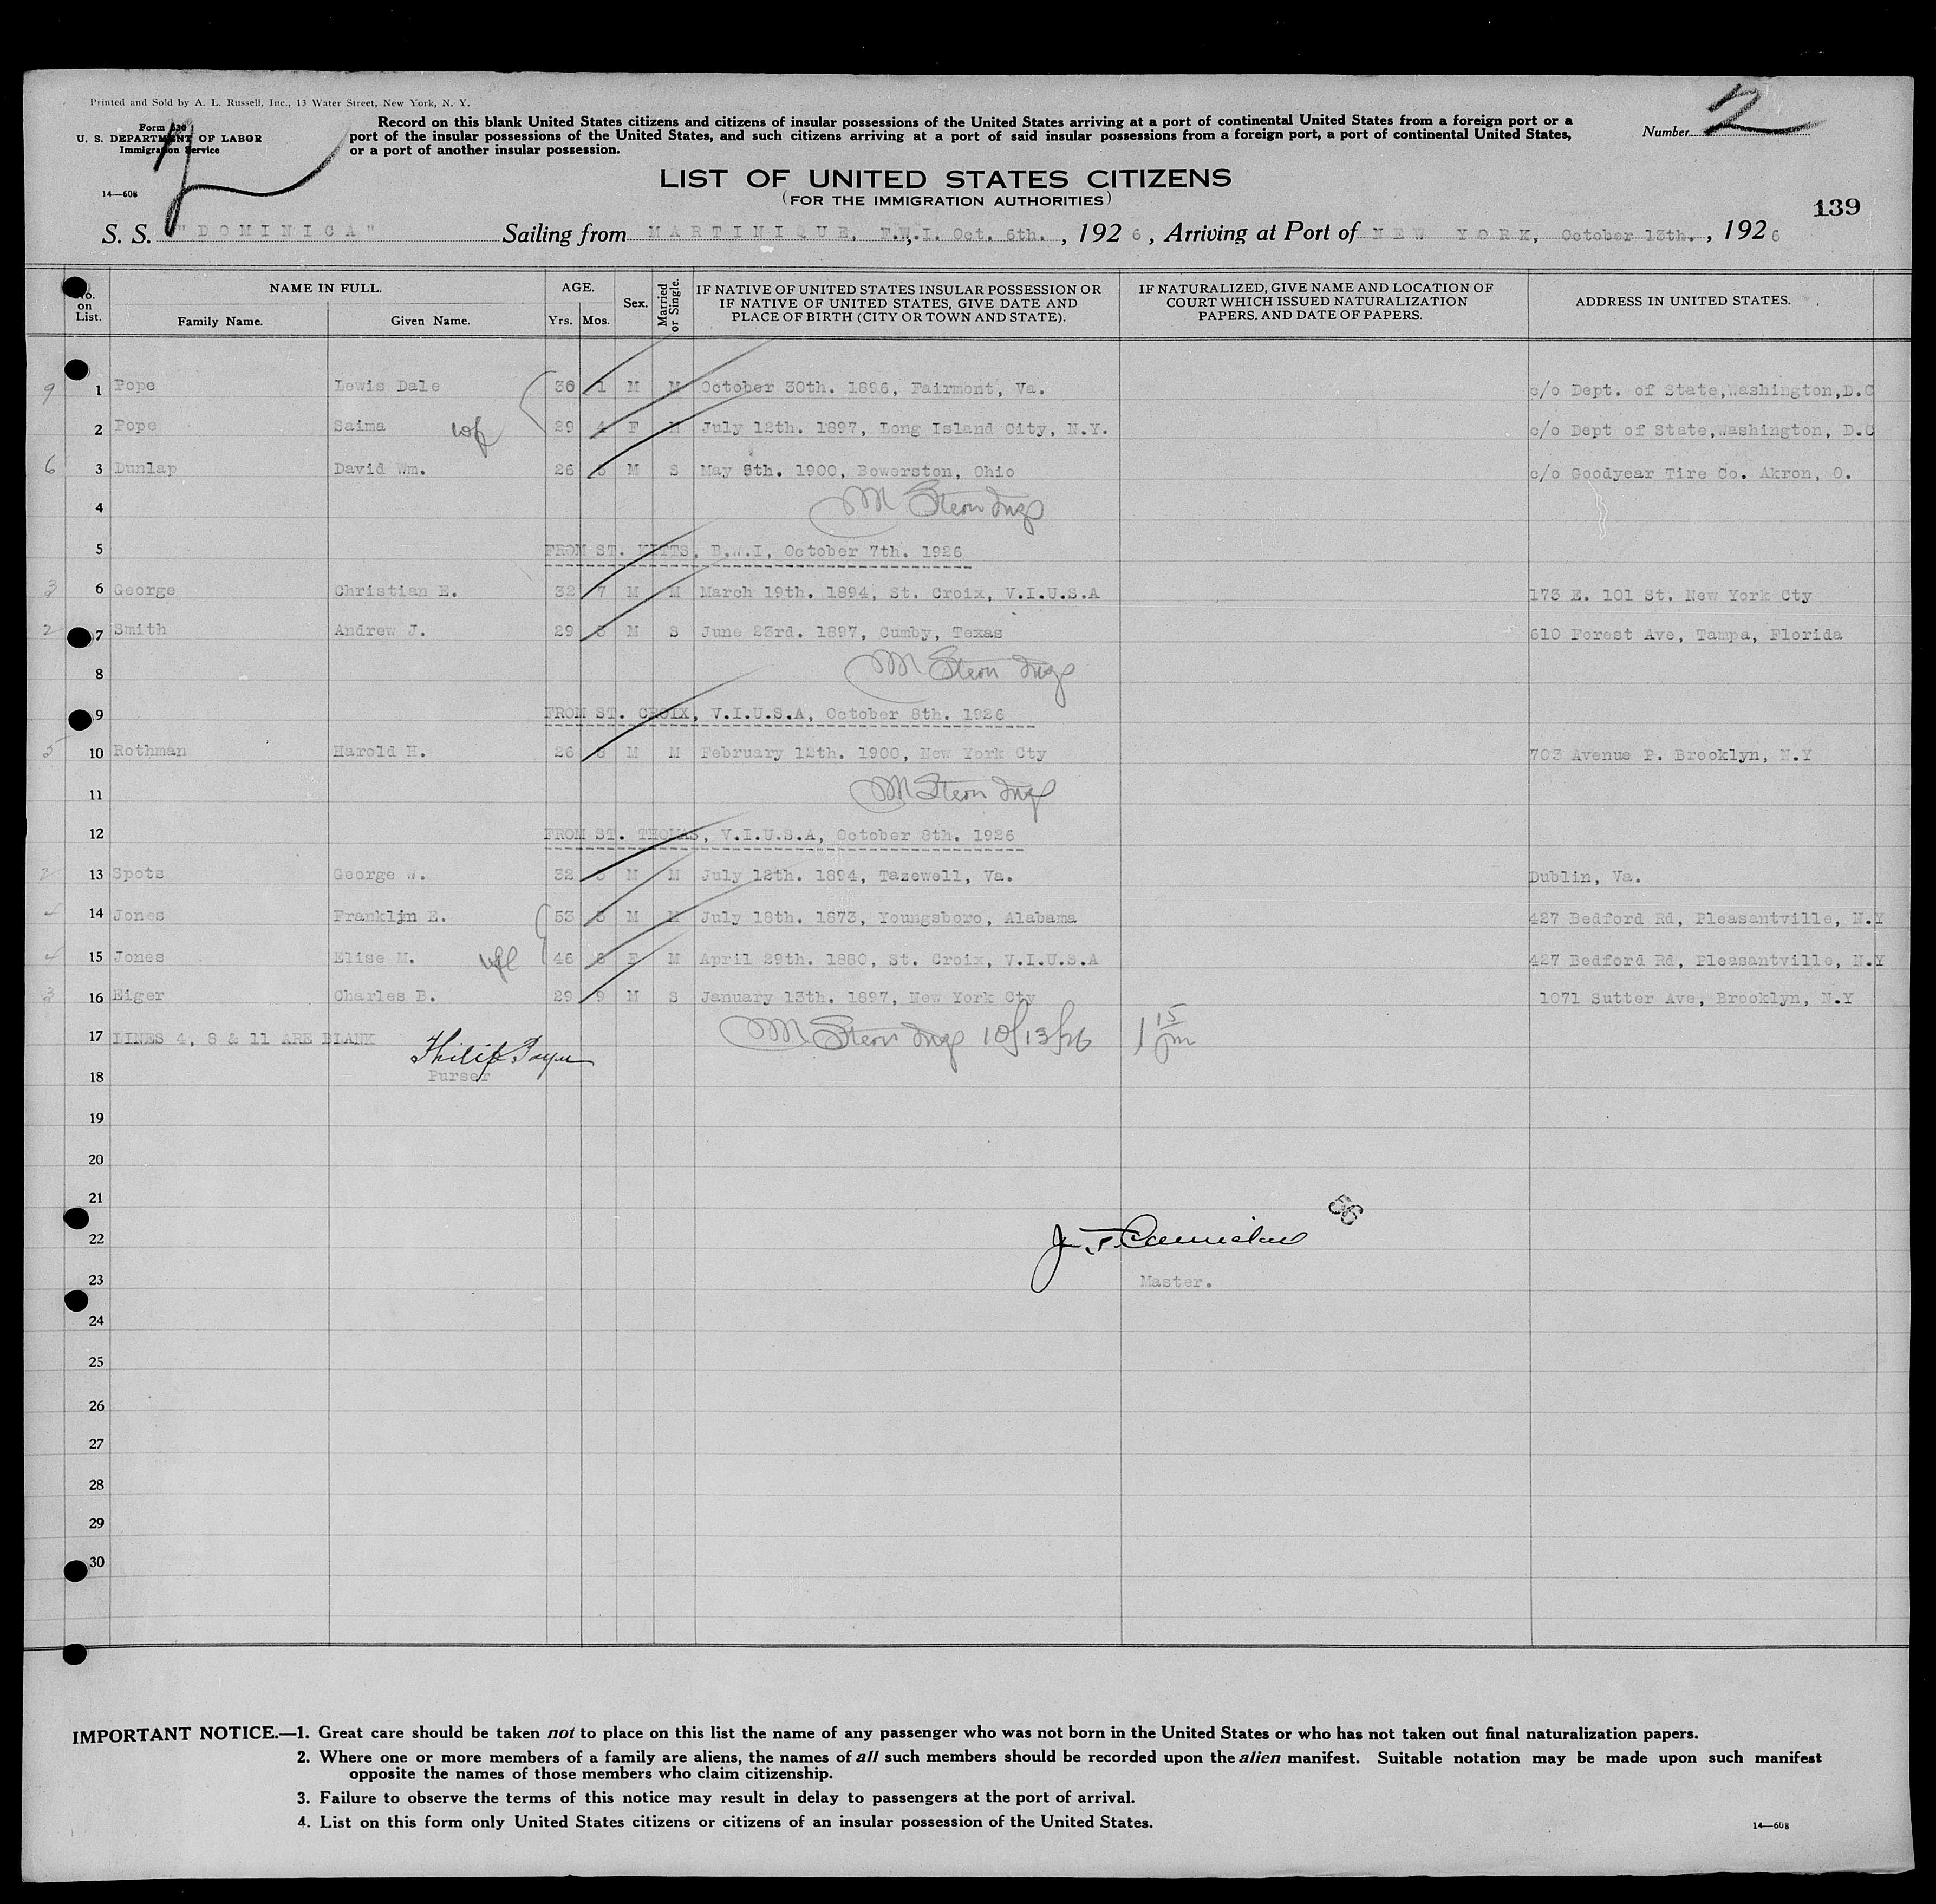 Printed and Sold by A. L. Russell, Inc., 13 Water Street, New York, N. Y.
Form 630
U. S. DEPARTMENT OF LABOR
Immigration Service
14—608
Record on this blank United States citizens and citizens of insular possessions of the United States arriving at a port of continental United States from a foreign port or a
port of the insular possessions of the United States, and such citizens arriving at a port of said insular possessions from a foreign port, a port of continental United States,
or a port of another insular possession.
Number 2
LIST OF UNITED STATES CITIZENS
(FOR THE IMMIGRATION AUTHORITIES)
139
S. S. "DOMINICA" Sailing from MARTINIQUE, F.W.I. Oct. 6th. , 1926 , Arriving at Port of NEW YORK, October 13th. , 1926
No. on List. NAME IN FULL. Family Name. Given Name. AGE. Yrs. Mos. Sex. Married or Single. IF NATIVE OF UNITED STATES INSULAR POSSESSION OR IF NATIVE OF UNITED STATES, GIVE DATE AND PLACE OF BIRTH (CITY OR TOWN AND STATE). IF NATURALIZED, GIVE NAME AND LOCATION OF COURT WHICH ISSUED NATURALIZATION PAPERS. AND DATE OF PAPERS. ADDRESS IN UNITED STATES.
9 1 Pope Lewis Dale 1 M M October 30th. 1896, Fairmont, Va. c/o Dept. of State,Washington,D.C
2 Pope Saima wf 29 4 F M July 12th. 1897, Long Island City, N.Y. c/o Dept of State,Washington, D.C
6 3 Dunlap David Wm. 26 5 M S May 5th. 1900, Bowerston, Ohio c/o Goodyear Tire Co. Akron, O.
4 M Stern Insp
5 FROM ST. KITTS, B.W.I, October 7th. 1926
3 6 George Christian E. 32 7 M M March 19th. 1894, St. Croix, V.I.U.S.A 173 E. 101 St. New York Cty
2 7 Smith Andrew J. 29 M S June 23rd. 1897, Cumby, Texas 610 Forest Ave, Tampa, Florida
8 M Stern Insp
9 FROM ST. CROIX, V.I.U.S.A, October 8th. 1926
5 10 Rothman Harold H. 26 M M February 12th. 1900, New York Cty 703 Avenue P. Brooklyn, N.Y
11 M Stern Insp
12 FROM ST. THOMAS, V.I.U.S.A, October 8th. 1926
2 13 Spots George W. 32 M M July 12th. 1894, Tazewell, Va. Dublin, Va.
4 14 Jones Franklin E. 53 M M July 18th. 1873, Youngsboro, Alabama 427 Bedford Rd, Pleasantville, N.Y
4 15 Jones Elise M. wf 46 F M April 29th. 1880, St. Croix, V.I.U.S.A 427 Bedford Rd, Pleasantville, N.Y
3 16 Eiger Charles B. 29 9 M S January 13th. 1897, New York Cty 1071 Sutter Ave, Brooklyn, N.Y
17 LINES 4, 8 & 11 ARE BLANK M Stern Insp 10/13/26 1 15 pm
Philip
18 Purser
19
20
21
56
22
23 Master.
24
25
26
27
28
29
30
IMPORTANT NOTICE.—1. Great care should be taken not to place on this list the name of any passenger who was not born in the United States or who has not taken out final naturalization papers.
2. Where one or more members of a family are aliens, the names of all such members should be recorded upon the alien manifest. Suitable notation may be made upon such manifest
opposite the names of those members who claim citizenship.
3. Failure to observe the terms of this notice may result in delay to passengers at the port of arrival.
4. List on this form only United States citizens or citizens of an insular possession of the United States.
14—608